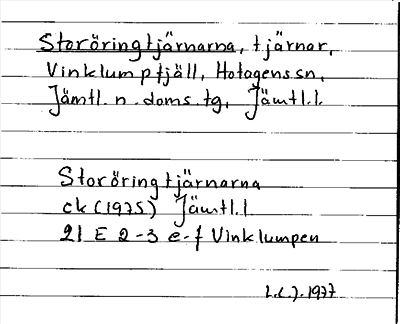 Storöringtjärnarna, tjärnar,
Vinklumpfjäll, Hotagens sn,
Jämtl. n. doms. tg, Jämtl.l.
Storöringtjärnarna
ek (1975) Jämtl.l
21 E 2-3 e-f Vinklumpen
1977